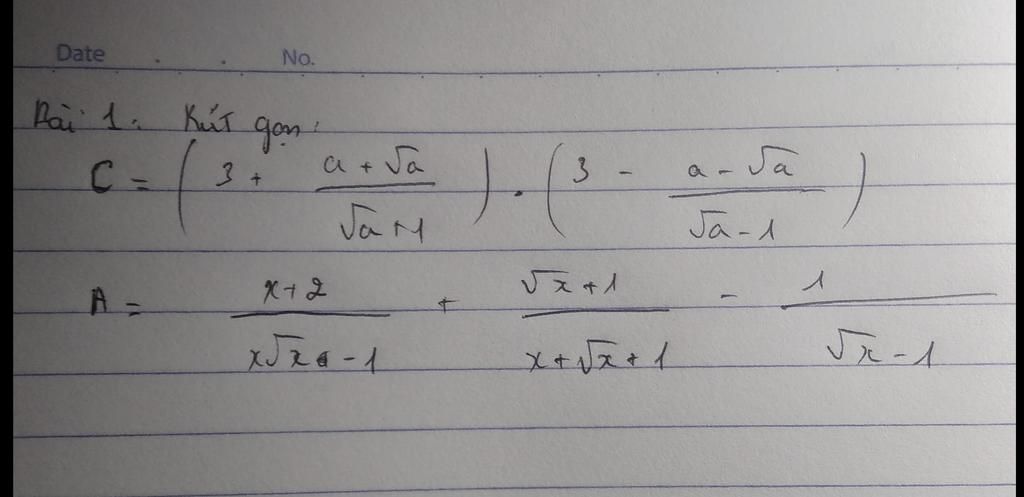 Date . . No.
Bài 1: Rút gọn:
C = ( 3 + (a + √a)/(√a + 1) ) . ( 3 - (a - √a)/(√a - 1) )
A = (x + 2)/(x√x - 1) + (√x + 1)/(x + √x + 1) - 1/(√x - 1)